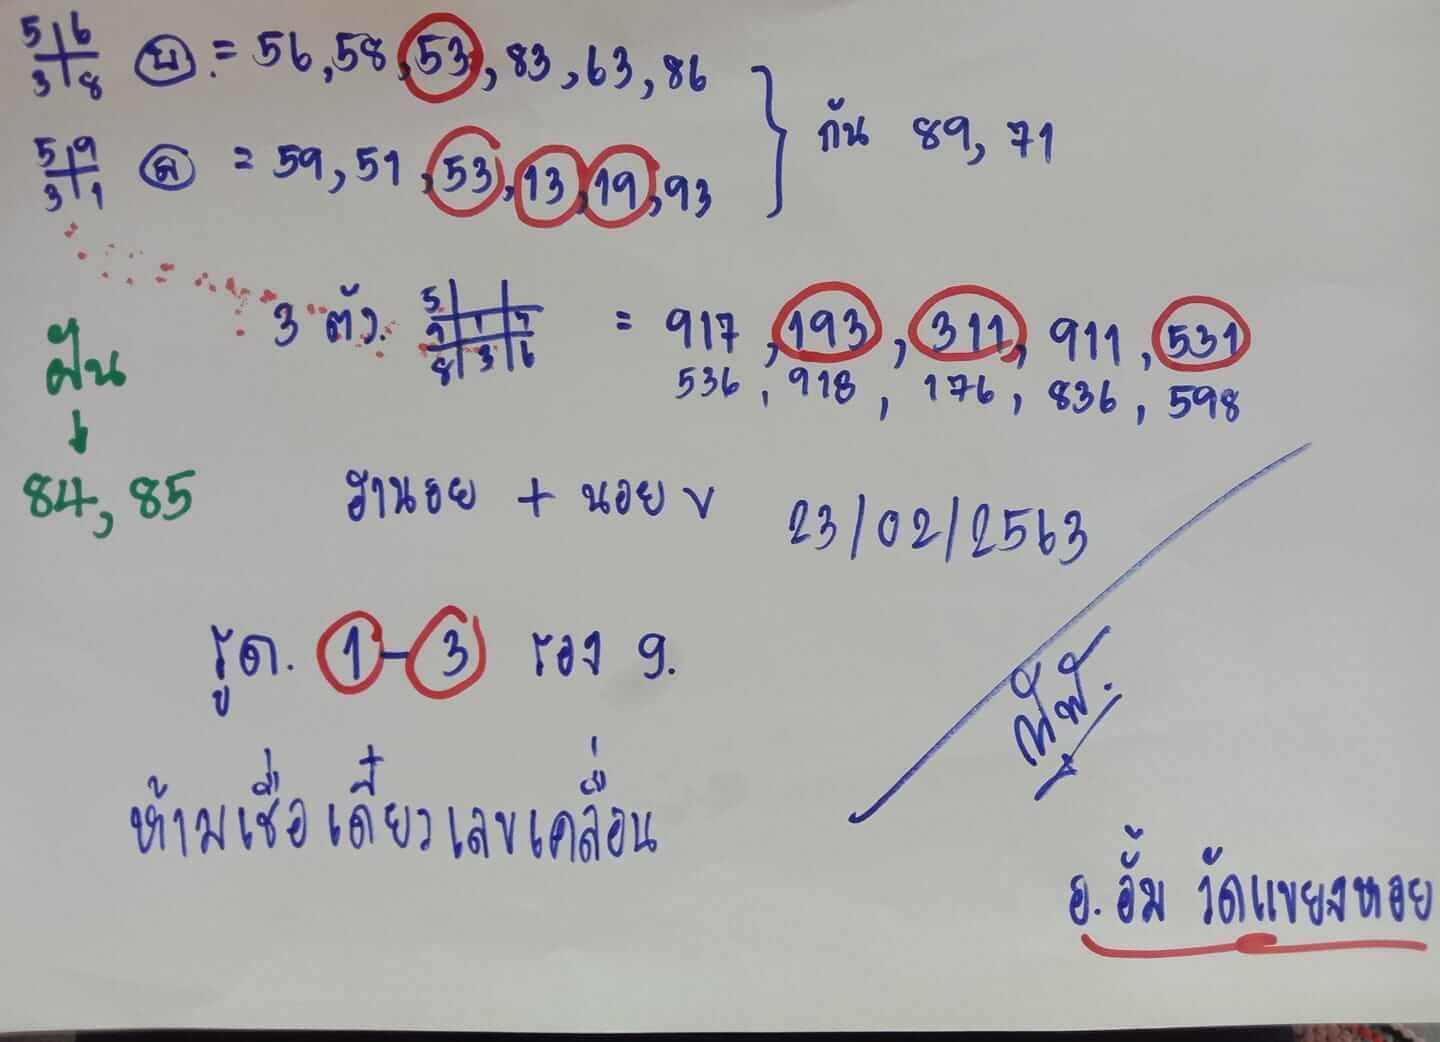 5 6
3 8
บ = 56, 58, 53, 83, 63, 86
5 9
3 1
ล = 59, 51, 53, 13, 19, 93
กัน 89, 71
3 ตัว.
5
9 1 7
8 3 6
= 917, 193, 311, 911, 531
536, 918, 176, 836, 598
ฝัน
84, 85
+ นอย v 23/02/2563
รูด. 1-3 รอง 9.
ห้ามเชื่อเดี๋ยวเลขเคลื่อน
อ. อั้ม วัดแขยงหอย